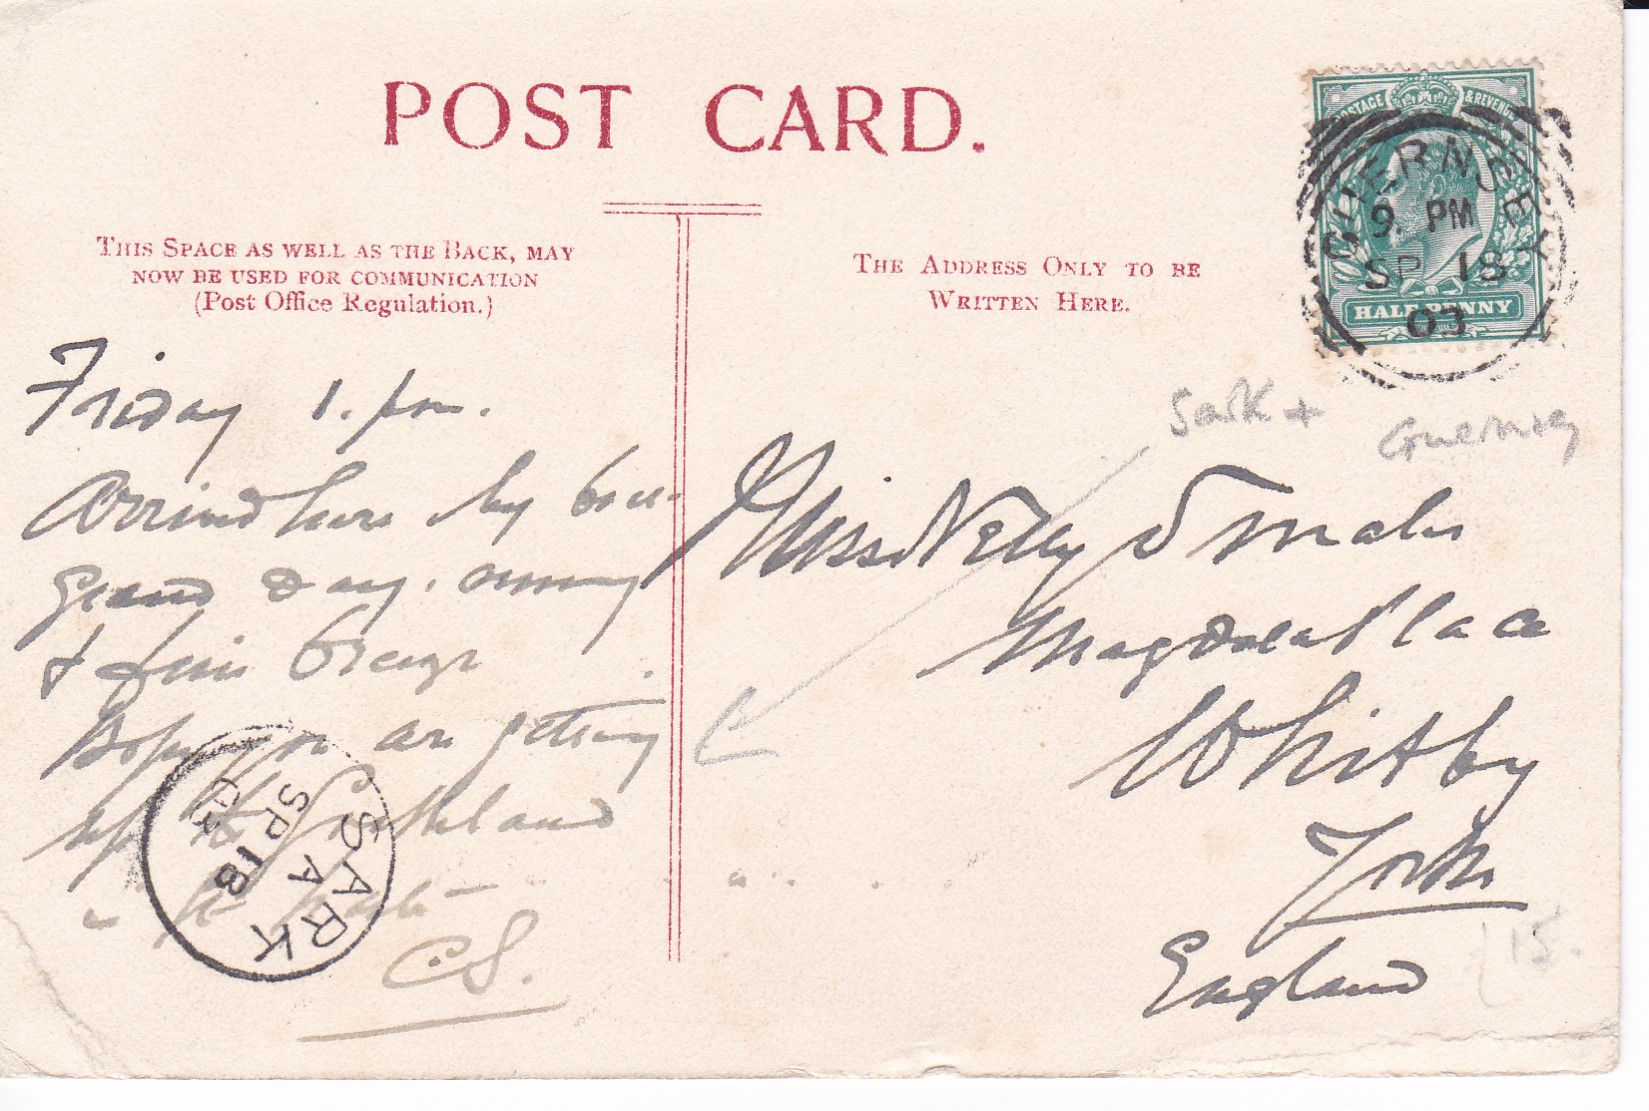 POST CARD.
THIS SPACE AS WELL AS THE BACK, MAY
NOW BE USED FOR COMMUNICATION
(Post Office Regulation.)
THE ADDRESS ONLY TO BE
WRITTEN HERE.
POSTAGE & REVENUE
HALFPENNY
GUERNSEY
9. PM
SP 18
03
Sark +
Guernsey
Friday 1. pm.
Arrived here by
Grand day.
+
Hope you are getting
up the
C.S.
SARK
A
SP 18
03
Miss Nelly Smales
Magdala Place
Whitby
Yorks
England
15.